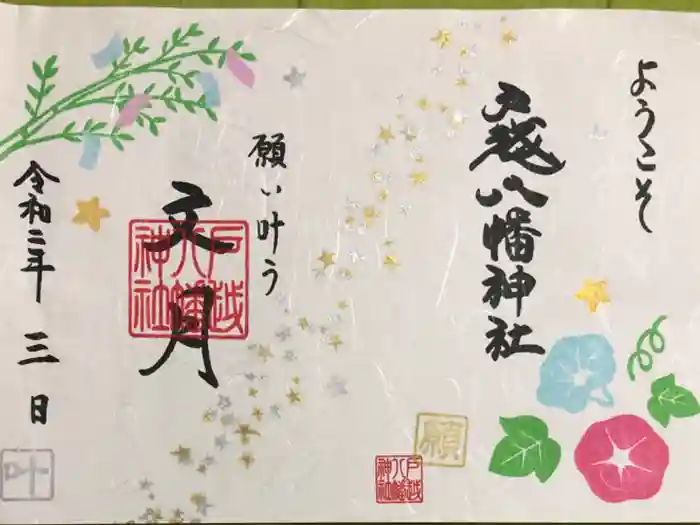 ようこそ
戸越八幡神社
願
戸越
八幡
神社
願い叶う
文月
戸越
八幡
神社
令和二年 三日
叶